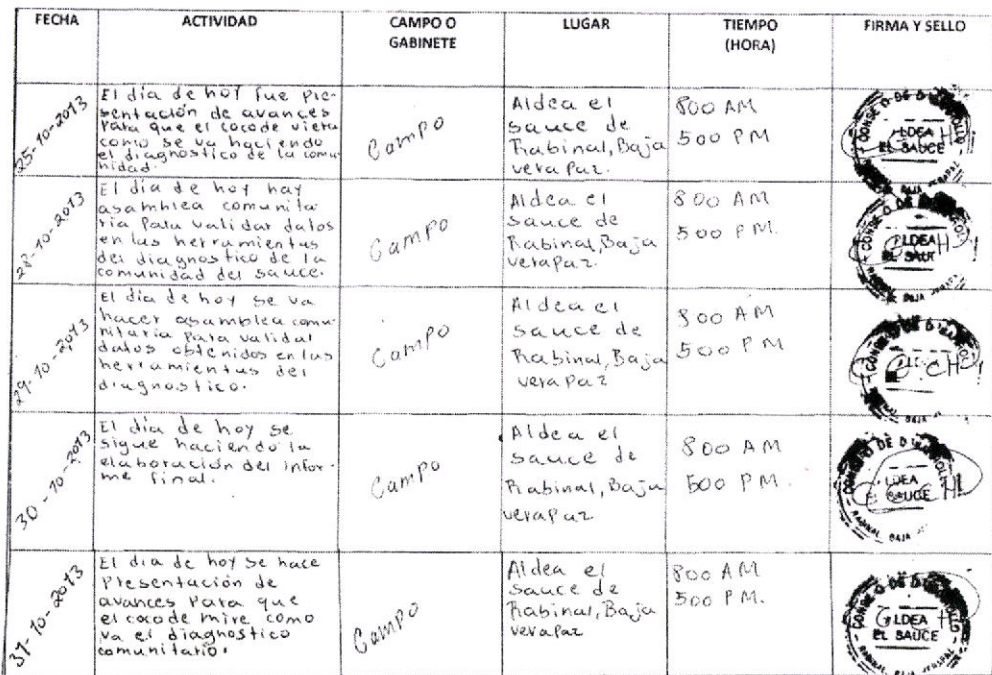 FECHA
ACTIVIDAD
CAMPO O
GABINETE
LUGAR
TIEMPO
(HORA)
FIRMA Y SELLO
25-10-2013
El día de hoy fue pre-
sentación de avances
Para que el cocode viera
como se va haciendo
el diagnostico de la comu-
nidad.
Campo
Aldea el
sauce de
Rabinal, Baja
vera Paz.
800 AM
500 PM
ALDEA
EL SAUCE
28-10-2013
El día de hoy hay
asamblea comunita
ria Para validar datos
en las herramientas
del diagnostico de la
comunidad del sauce.
Campo
Aldea el
sauce de
Rabinal, Baja
veraPaz.
800 AM
500 PM.
29-10-2013
El dia de hoy se va
hacer asamblea comu-
nitaria Para validar
datos obtenidos en las
herramientas del
diagnostico.
Campo
Aldea el
sauce de
Rabinal, Baja
vera Paz
800 AM
500 PM
30-10-2013
El dia de hoy se
sigue haciendo la
elaboración del infor-
me final.
Campo
Aldea el
sauce de
Rabinal, Baja
veraPaz
800 AM
500 PM.
31-10-2013
El dia de hoy se hace
Presentación de
avances Para que
el cocode mire como
va el diagnostico
comunitario.
Campo
Aldea el
sauce de
Rabinal, Baja
veraPaz
800 AM
500 PM.
ALDEA
EL SAUCE